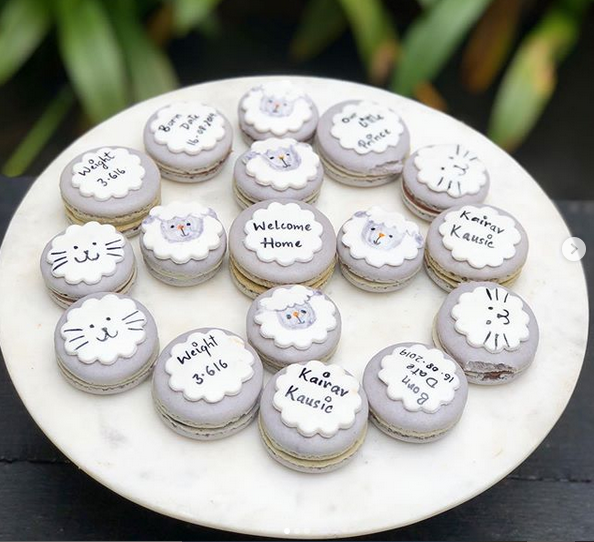 Born
Date
16·08·2019
Our
Little
Prince
Weight
3·616
Welcome
Home
Kairav
Kausic
Weight
3·616
Kairav
Kausic
Born
Date
16·08·2019